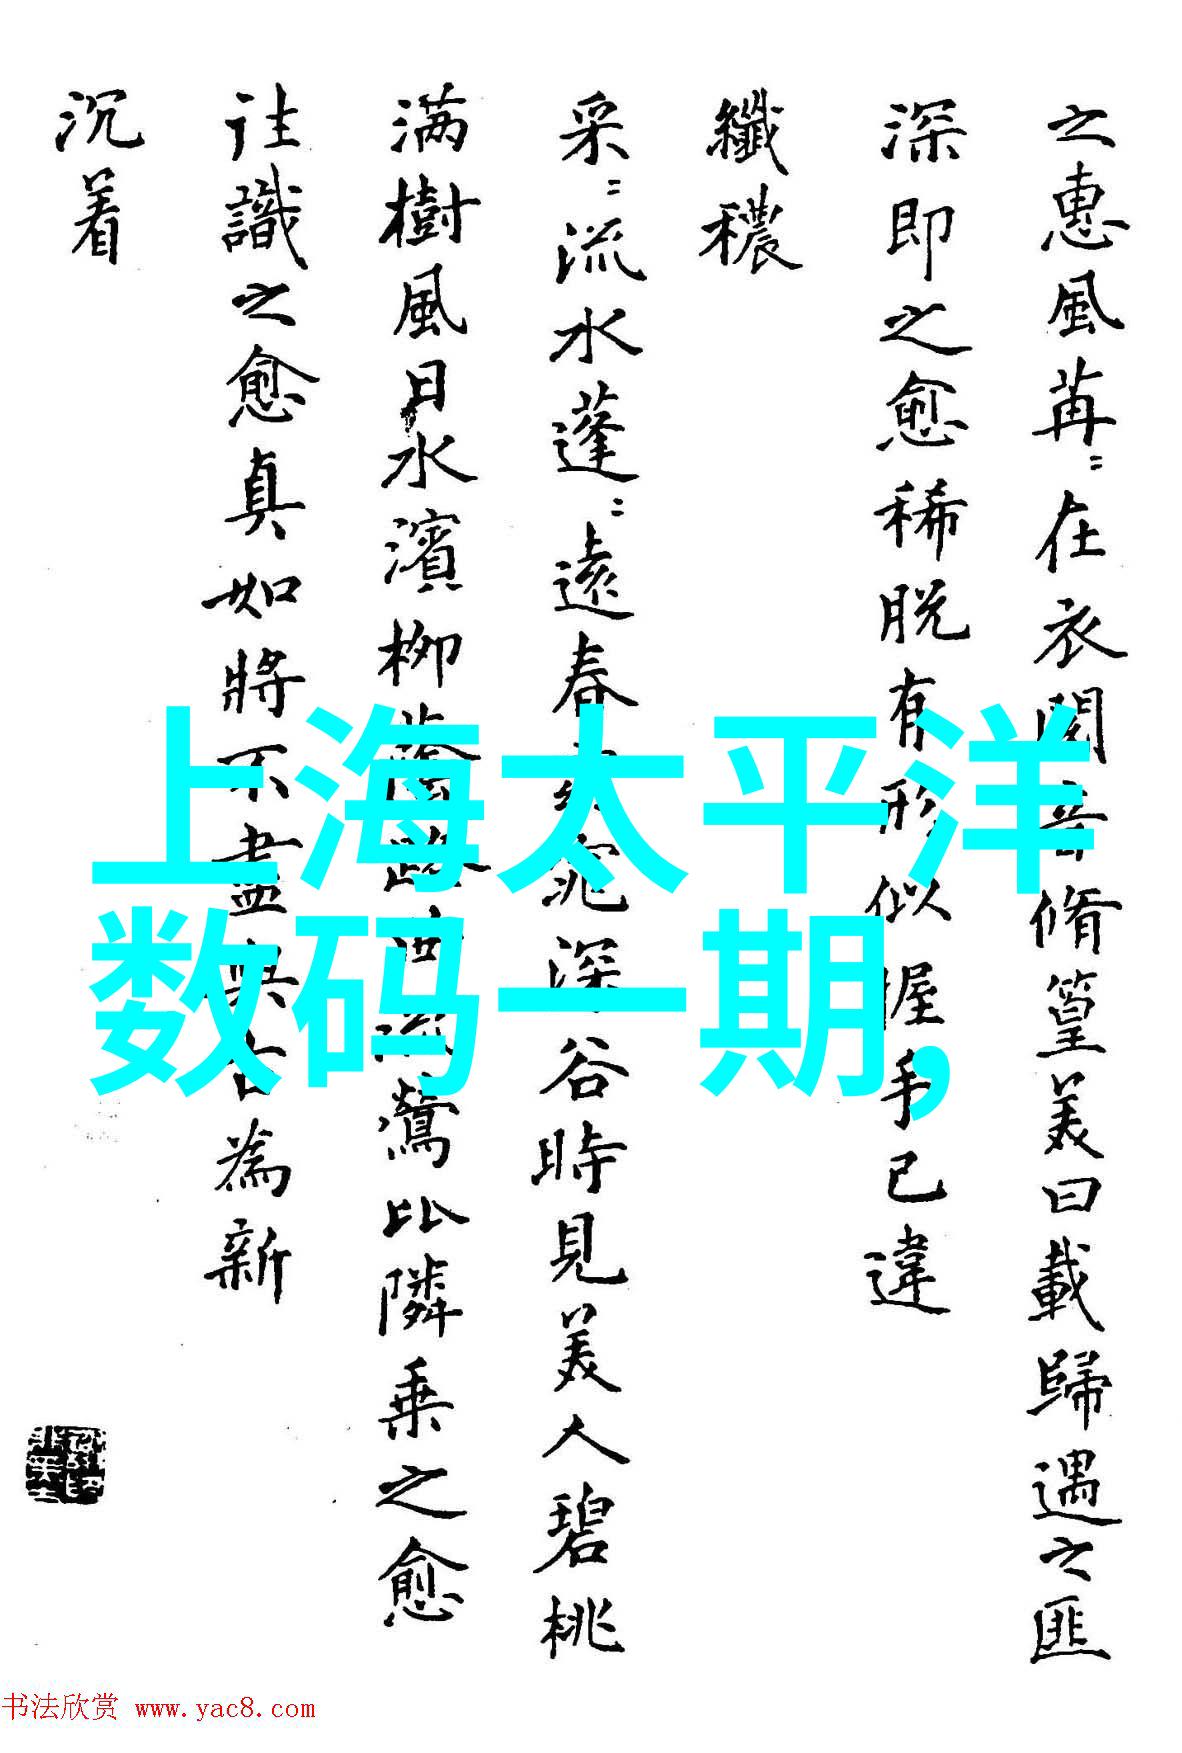 之惠風苒〻在衣閱音脩篁美曰載歸遇之匪
深即之愈稀脱有形似握手已違
纖穠
采〻流水蓬〻遠春窈窕深谷時見美人碧桃
满樹風日水濱柳蔭路曲流鶯比隣乗之愈
往識之愈真如將不盡與古為新
沉着
上海太平洋
数码一期,
书法欣赏 www.yac8.com